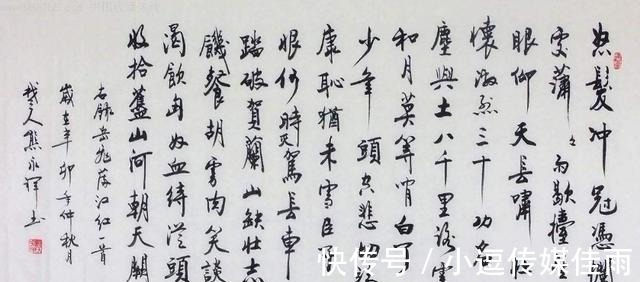 怒髮冲冠憑闌
處瀟々雨歇擡望
眼仰天長嘯
懷激烈三十功名
塵與土八千里路雲
和月莫等閒白了
少年頭空悲切
康恥猶未雪臣
恨何時滅駕長車
踏破賀蘭山缺壯志
饑餐胡虜肉笑談
渴飲匈奴血待從頭
收拾舊山河朝天闕
右錄岳飛滿江紅一首
歲在辛卯年仲秋月
人熊永輝书
快传号/小逗传媒佳雨